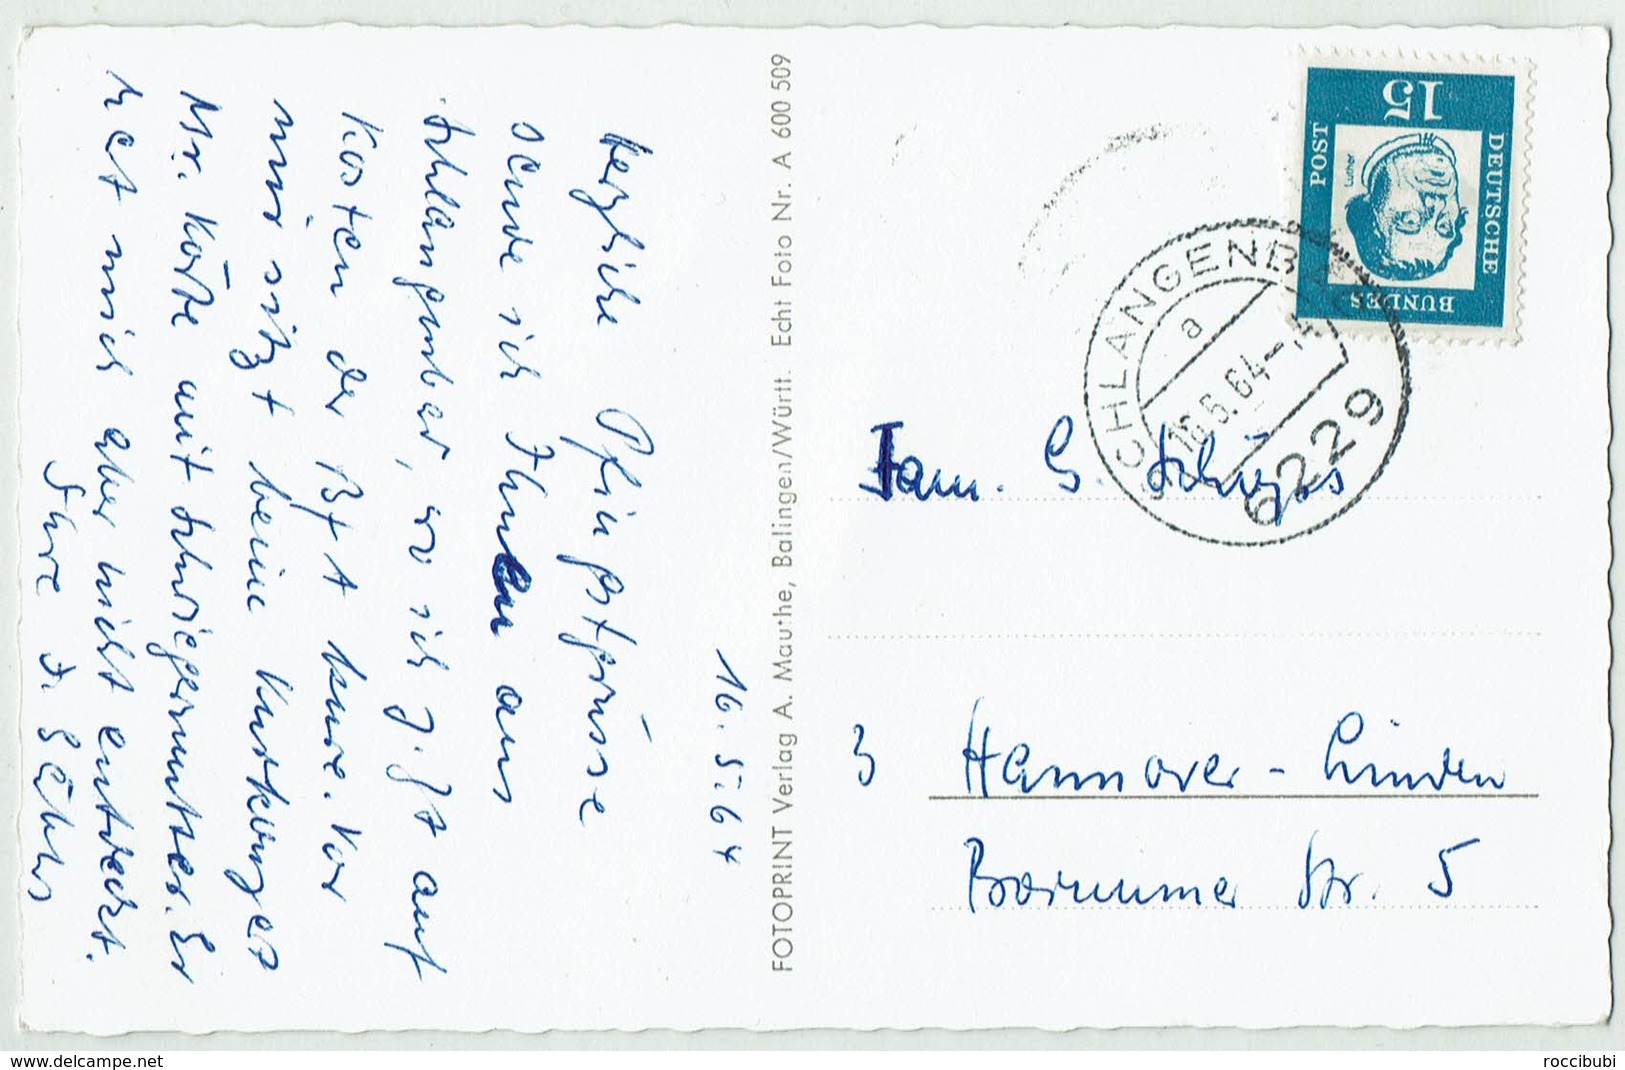 16.5.64
Herzliche Pfingstgrüsse
sende ich Ihnen aus
Schlangenbad, wo ich z. Zt auf
Kosten der BfA kure. Vor
mir sitzt beim Kurkonzert
Hr. Korte mit Schwiegermutter. Er
hat mich aber nicht entdeckt.
Ihre
FOTOPRINT Verlag A. Mauthe, Balingen/Württ. Echt Foto Nr. A 600 509
15
DEUTSCHE
BUNDES
POST
Luther
SCHLANGENBAD
a
6229
Fam. G.
3 Hannover-Linden
Bornumer Str. 5
www.delcampe.net
roccibubi